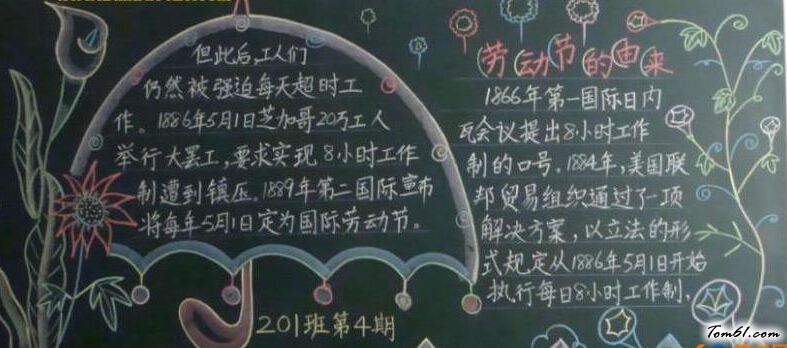 劳动节的由来
1866年第一国际日内
瓦会议提出8小时工作
制的口号。1884年，美国联
邦贸易组织通过了一项
解决方案，以立法的形
式规定从1886年5月1日开始
执行每日8小时工作制，
但此后，工人们
仍然被强迫每天超时工
作。1886年5月1日芝加哥20万工人
举行大罢工，要求实现8小时工作
制遭到镇压。1889年第二国际宣布
将每年5月1日定为国际劳动节。
201班第4期
Tom61.com